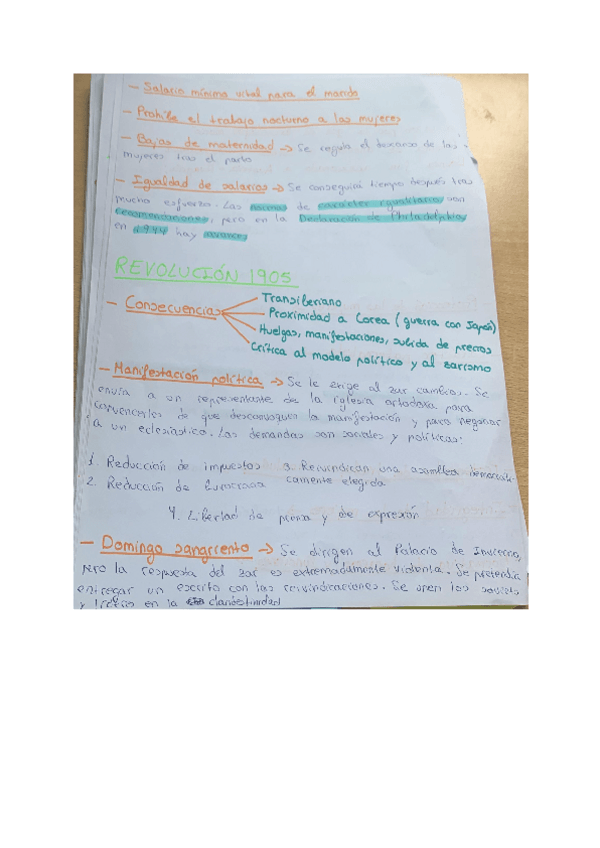 - Salario mínimo vital para el marido
- Prohibe el trabajo nocturno a las mujeres
- Bajas de maternidad → Se regula el descanso de las
mujeres tras el parto
- Igualdad de salarios → Se conseguirá tiempo después tras
mucho esfuerzo. Las normas de carácter igualitario son
recomendaciones, pero en la Declaración de Philadelphia,
en 1944 hay
REVOLUCIÓN 1905
- Consecuencias
Transiberiano
Proximidad a Corea (guerra con Japón)
Huelgas, manifestaciones, subida de precios
Crítica al modelo político y al zarismo
- Manifestación política → Se le exige al zar cambios. Se
envía a un representante de la iglesia ortodoxa para
convencerles de que desconvoquen la manifestación y para negociar
a un eclesiástico. Las demandas son sociales y políticas:
1. Reducción de impuestos 3. Reivindican una asamblea democráti-
2. Reducción de burocracia camente elegida
4. Libertad de prensa y de expresión
- Domingo sangriento → Se dirigen al Palacio de Invierno,
pero la respuesta del zar es extremadamente violenta. Se pretendía
entregar un escrito con las reivindicaciones. Se unen los soviets
y en la clandestinidad